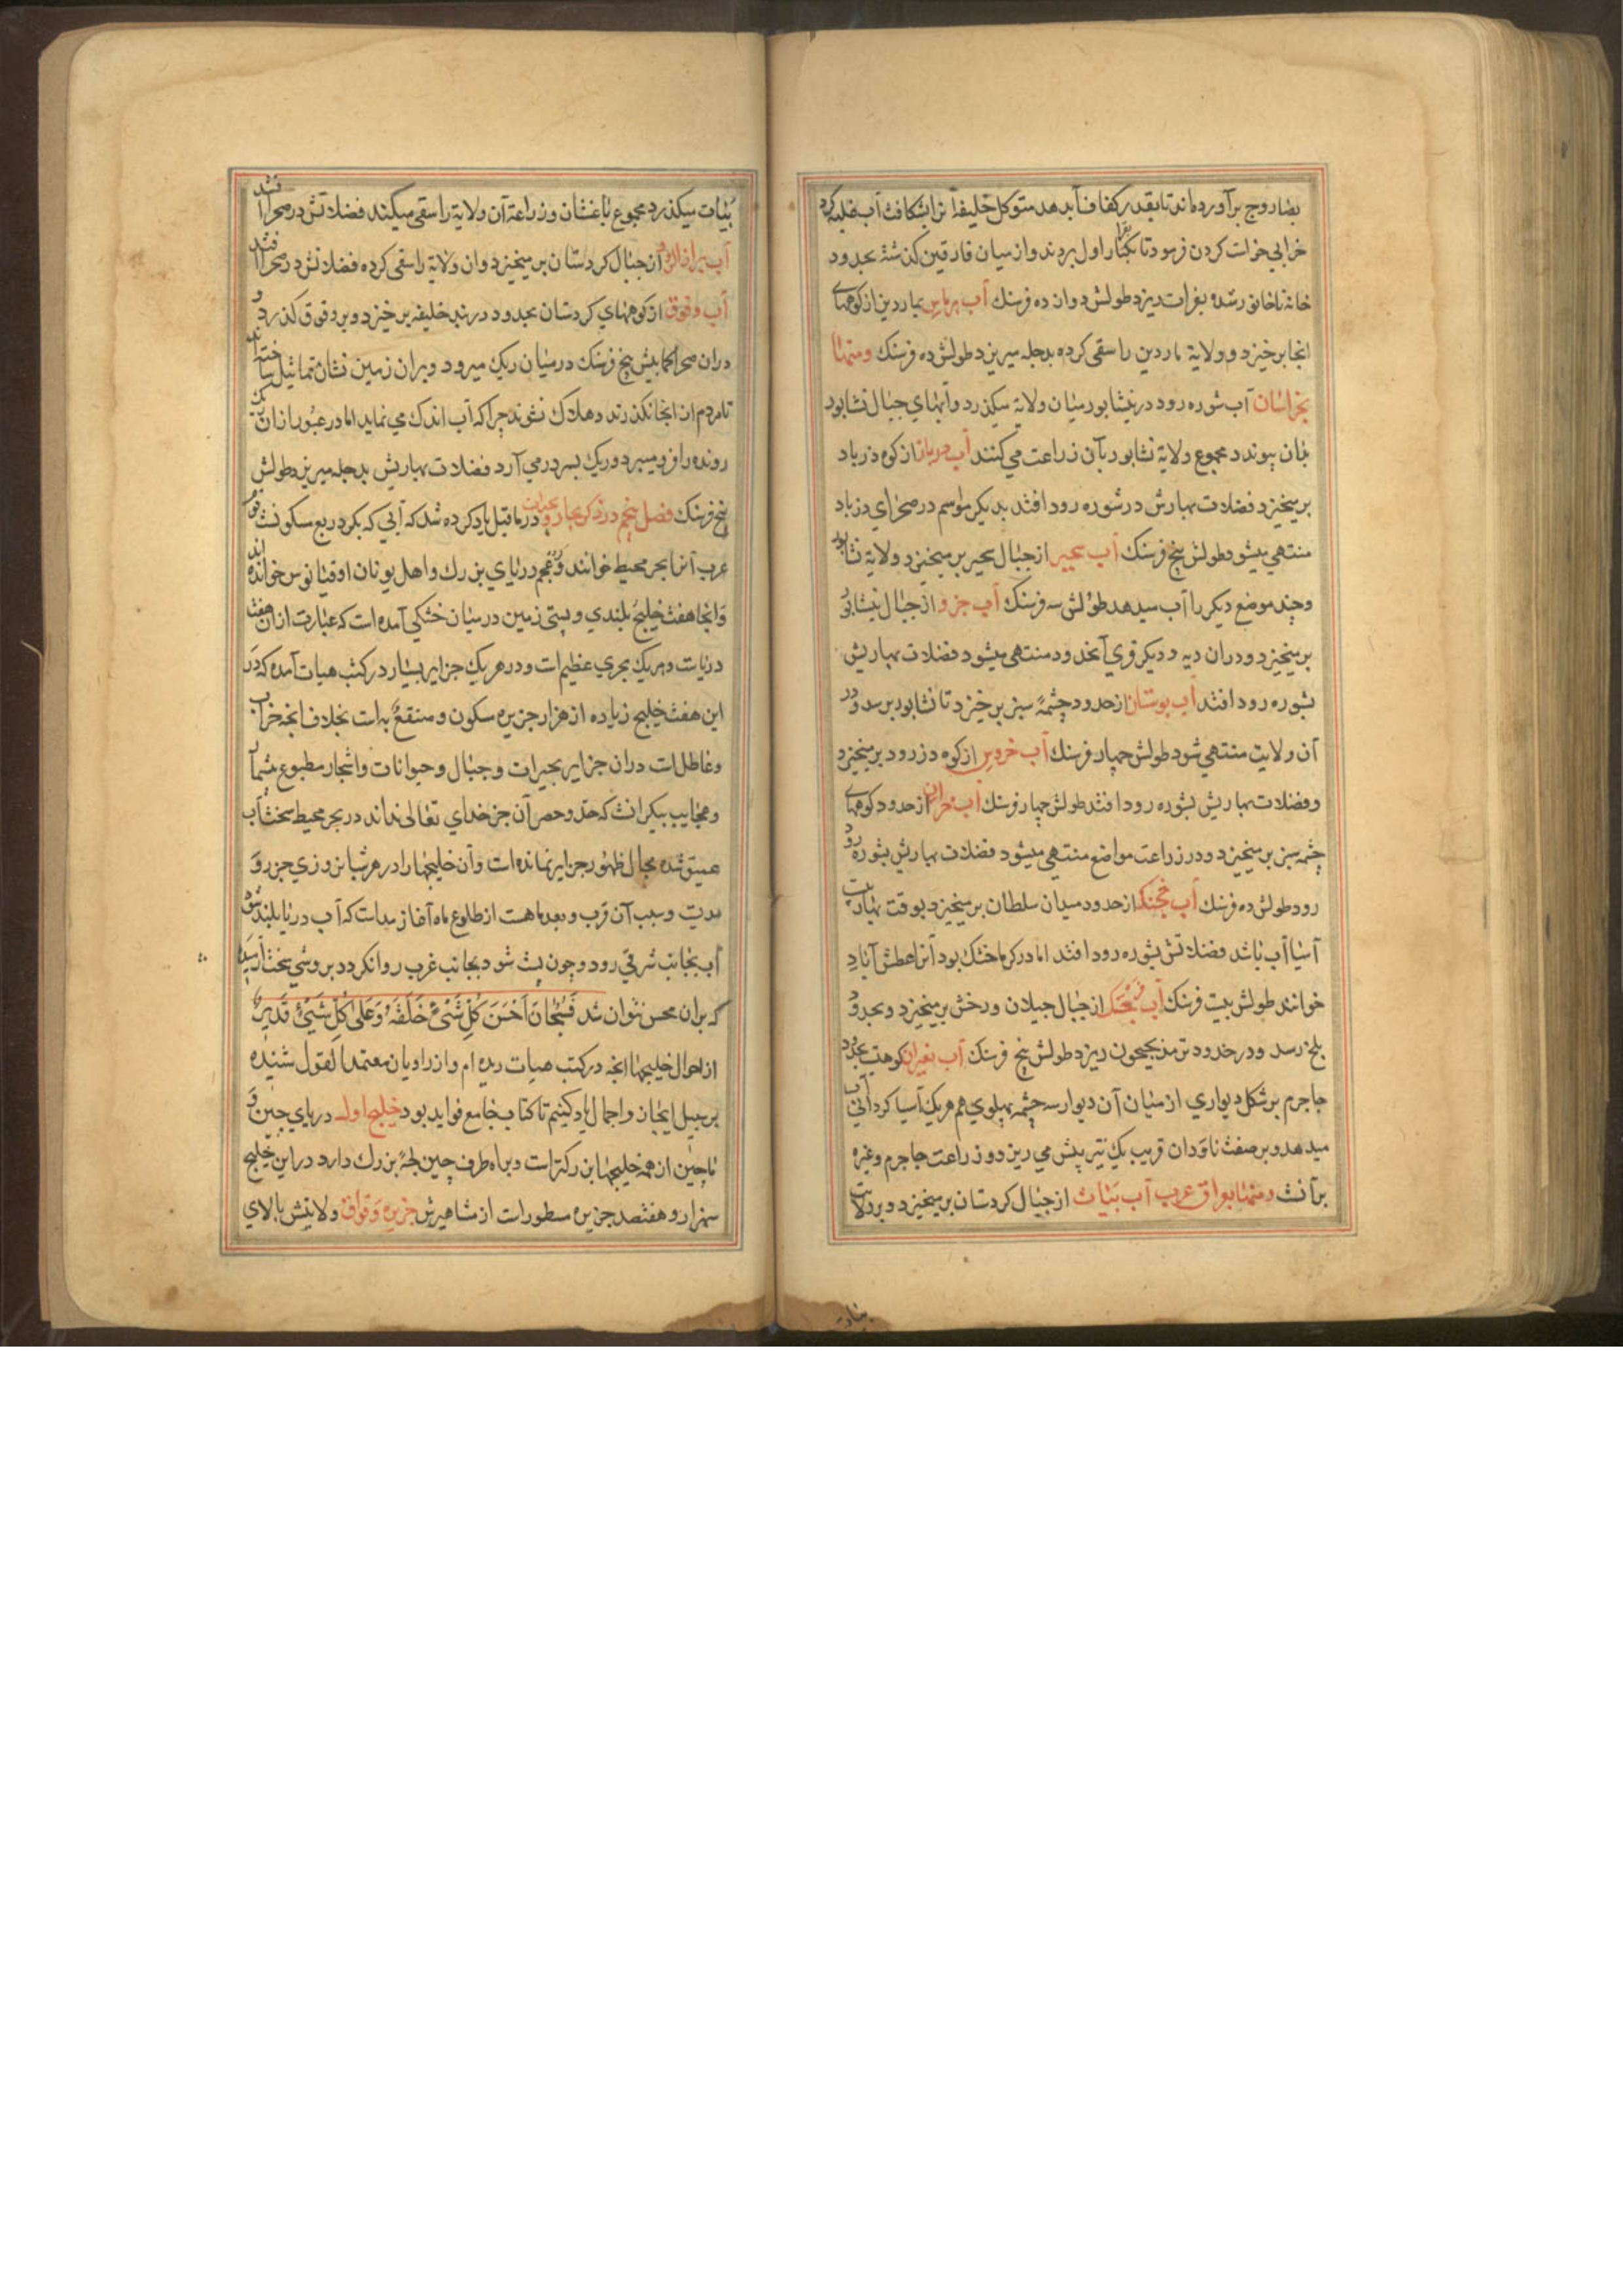 بصاروج برآورده‌اند تا بقدر کفاف آب دهد متوکل خلیفه آنرا بشکافت آب غلبه کرد
خرابی خواست کردن فرمود تا بکبار اول بردند و از میان فارقین کذشته بحدود
رسد بفرات ریزد طولش دوازده فرسنك آب هرماس بماردین از کوههای
آنجا برخیزد و ولایة ماردین را سقی کرده بدجله میریزد طولش ده فرسنك ومنهتا
بخراسان آب شوره رود در نیشابور میان ولایة میکذرد و آبهای جبال نشابور
بدان پیوندد مجموع ولایة نشابور بآن زراعت می کنند آب درباد از کوه درباد
برمیخیزد فضلات بهارش در شوره رود افتد بدیکر مواسم در صحرای درباد
منتهی میشود طولش پنج فرسنك آب بحیر از جبال بحیر برمیخیزد ولایة نشابور
وچند موضع دیکر را آب میدهد طولش سه فرسنك آب جزو از جبال نیشابور
برمیخیزد و در ان دیه و دیکر قوی آنحدود منتهی میشود فضلات بهاریش
بشوره رود افتد آب بوستان از حدود چشمۀ سبز برخیزد تا نشابور برسد و در
آن ولایت منتهی شود طولش چهار فرسنك آب خروین از کوه دزرود برمیخیزد
وفضلات بهاریش بشوره رود افتد طولش چهار فرسنك آب از حدود کوههای
چشمه سبز برمیخیزد و در زراعت مواضع منتهی میشود فضلات بهاریش بشوره رود
رود طولش ده فرسنك آب خجنك از حدود میدان سلطان برمیخیزد بوقت بهار بیست
آسیا آب باشد فضلاتش بشوره رود افتد اما در کرما خشك بود آنرا عطش آباد
خوانند طولش بیست فرسنك آب از جبال جیلان و رخش برمیخیزد وبحدود
بلخ رسد و در حدود ترمذ بجیحون ریزد طولش پنج فرسنك آب بغیران کوهیست بحدود
جاجرم بر شکل دیواری از میان آن دیوار سه چشمه بپهلوی هم هریك آسیا کردانی آب
میدهد و بر صفت ناودان قریب یك تیر پیش می ریزد و زراعت جاجرم وغیره
برآنست ومنهتا بعراق عرب آب بیات از جبال کردستان برمیخیزد و بر ولایت
بیات
بیات میکذرد مجموع باغستان و زراعة آن ولایة را سقی میکنند فضلاتش در صحرا افتد
آب براز الروز از جبال کردستان برمیخیزد و ان ولایة را سقی کرده فضلاتش در صحرا افتد
آب دقوق از کوههای کردستان بحدود دربند خلیفه برخیزد و بر دقوق کذرد و
دران صحرا کمابیش پنج فرسنك در میان ریك میرود و بران زمین نشان تماثیل ساخته اند
تا مردم از انجا نکذرند و هلاك نشوند چرا که آب اندك می نماید اما در عبور از ان ریك
رونده را فرو میبرد و ریك بسر در می آرد فضلات بهاریش بدجله میریزد طولش
پنج فرسنك فصل پنجم در ذکر بحار و بحیرات در ما قبل یاد کرده شد که آبی که بکرد ربع مسکونست
عرب آنرا بحر محیط خوانند و عجم دریای بزرك و اهل یونان اوقیانوس خوانده اند
و آنجا هفت خلیج بلندی و پستی زمین در میان خشکی آمده است که عبارت از ان هفت
دریاست و هریك بحری عظیم است و در هریك جزایر بسیار در کتب هیات آمده که در
این هفت خلیج زیاده از هزار جزیره مسکون و منتفع به است بخلاف انچه خراب
وعاطل است دران جزایر بحیرات و جبال و حیوانات واشجار مطبوع بیشمار
وعجایب بیکرانست که حد و حصر آن جز خدای تعالی نداند در بحر محیط سخت آب
عمیق شده مجال ظهور جزایر نمانده است و آن خلیجها را در هر شبانروزی جزر و
مدیست وسبب آن قرب و بعد ماهست از طلوع ماه آغاز مداست که آب دریا بلند شود
آب بجانب شرقی رود و چون پست شود بجانب غرب روانکردد بروشی سخت آرسیده
که بران محس نتوان شد فسبحان احسن کل شیء خلقه و علی کل شیء قدیر
از احوال خلیجها آنچه در کتب هیات دیده ام و از راویان معتمد القول شنیده
بر سبیل ایجاز و اجمال یاد کنیم تا کتاب جامع فواید بود خلیج اول دریای چین و
ماچین از همه خلیجها بزرکتر است و براه طرف چین لجۀ بزرك دارد در این خلیج
سه هزار و هفتصد جزیره مسطور است از مشاهیرش جزیره وقواق ولایتش بالای